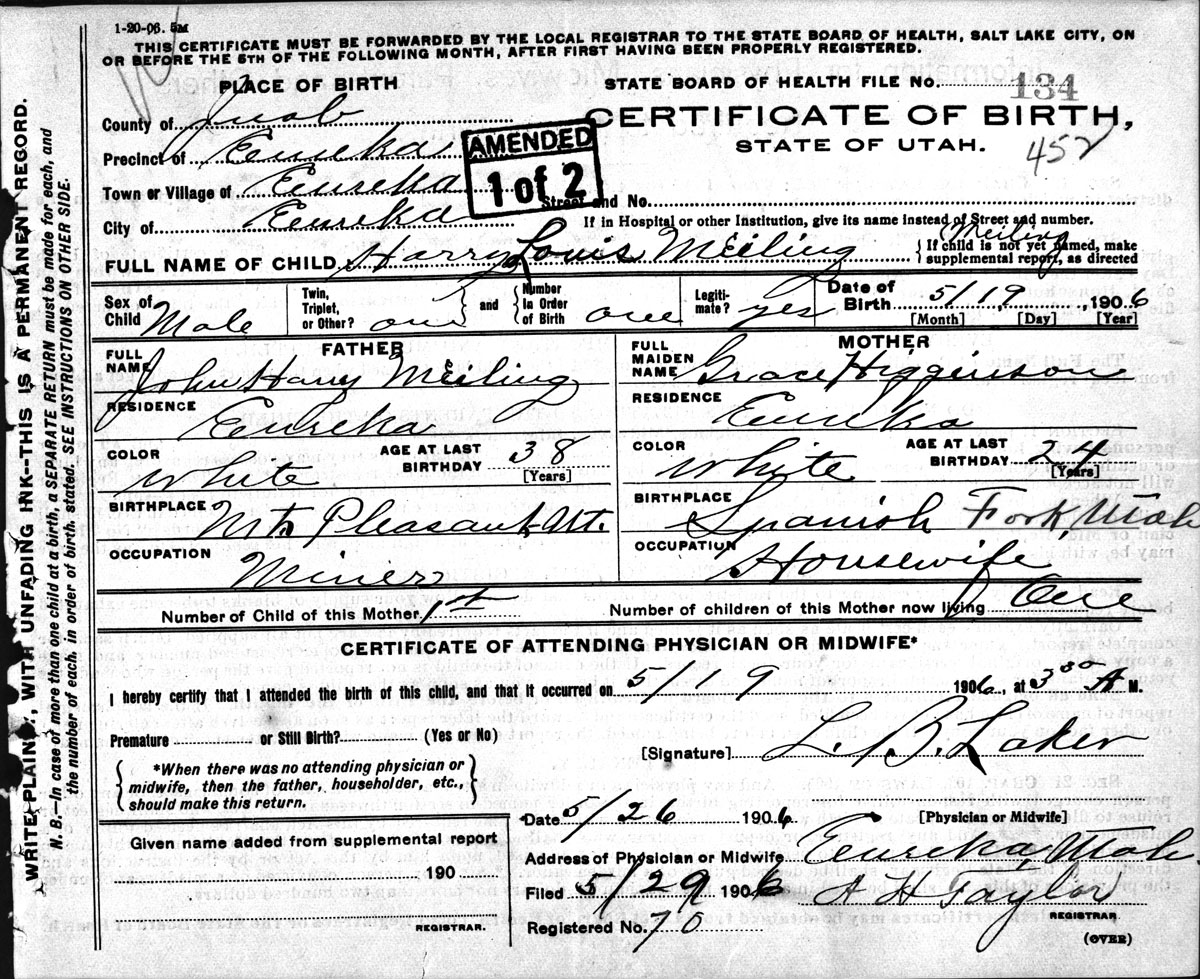 1-20-06. 5M
THIS CERTIFICATE MUST BE FORWARDED BY THE LOCAL REGISTRAR TO THE STATE BOARD OF HEALTH, SALT LAKE CITY, ON
OR BEFORE THE 5TH OF THE FOLLOWING MONTH, AFTER FIRST HAVING BEEN PROPERLY REGISTERED.
PLACE OF BIRTH
STATE BOARD OF HEALTH FILE NO. 134
CERTIFICATE OF BIRTH,
STATE OF UTAH.
452
County of Juab
Precinct of Eureka
Town or Village of Eureka
City of Eureka
AMENDED
1 of 2
Street and No.
If in Hospital or other Institution, give its name instead of Street and number.
Meiling
FULL NAME OF CHILD Harry Louis Meiling
{ If child is not yet named, make
supplemental report, as directed
Sex of Child Male
Twin, Triplet, or Other? one
and
Number in Order of Birth one
Legiti-mate? yes
Date of Birth 5/19 1906
[Month] [Day] [Year]
FATHER
FULL NAME John Harry Meiling
RESIDENCE Eureka
COLOR White
AGE AT LAST BIRTHDAY 38
[Years]
BIRTHPLACE Mt. Pleasant Ut.
OCCUPATION Miner
MOTHER
FULL MAIDEN NAME Grace Higginson
RESIDENCE Eureka
COLOR White
AGE AT LAST BIRTHDAY 24
[Years]
BIRTHPLACE Spanish Fork, Utah
OCCUPATION Housewife
Number of Child of this Mother 1st
Number of children of this Mother now living One
CERTIFICATE OF ATTENDING PHYSICIAN OR MIDWIFE*
I hereby certify that I attended the birth of this child, and that it occurred on 5/19 1906, at 3 30 A M.
Premature or Still Birth? (Yes or No)
[Signature] L. B. Laker
*When there was no attending physician or
midwife, then the father, householder, etc.,
should make this return.
Date 5/26 1906
[Physician or Midwife]
Given name added from supplemental report
190
REGISTRAR.
Address of Physician or Midwife Eureka, Utah
Filed 5/29 1906 A H Taylor
REGISTRAR
Registered No. 70
(OVER)
WRITE PLAINLY, WITH UNFADING INK—THIS IS A PERMANENT RECORD.
N. B.—In case of more than one child at a birth, a SEPARATE RETURN must be made for each, and
the number of each, in order of birth, stated. SEE INSTRUCTIONS ON OTHER SIDE.